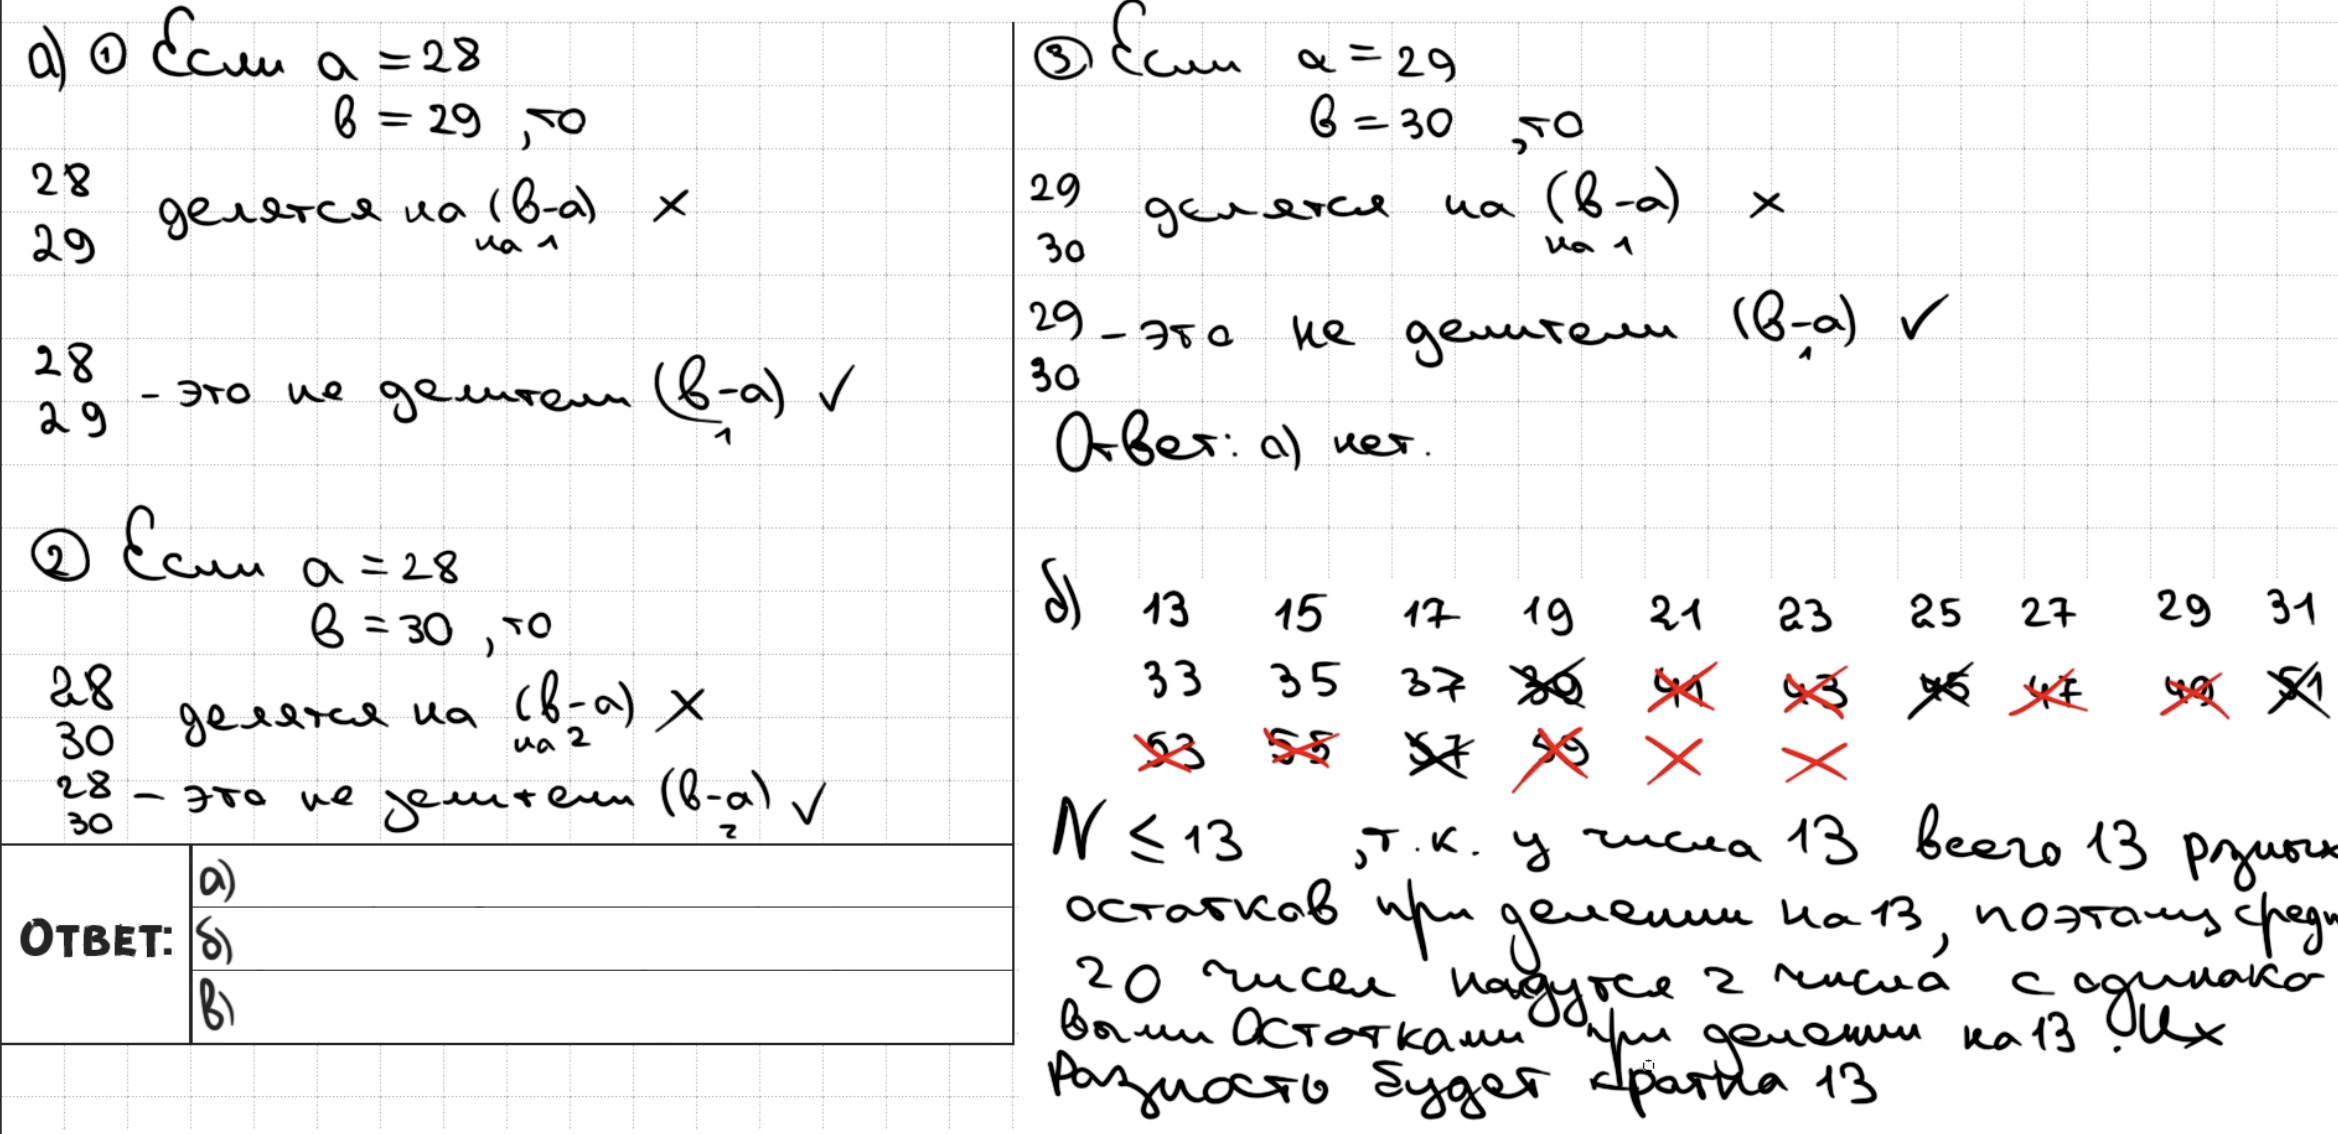 а) ① Если a = 28
в = 29 , то
28
29 делятся на (в-а) ×
на 1
28
29 - это не делители (в-а) ✓
1
② Если a = 28
в = 30 , то
28
30 делятся на (в-а) ×
на 2
28
30 - это не делители (в-а) ✓
2
ОТВЕТ:
а)
б)
в)
③ Если a = 29
в = 30 , то
29
30 делятся на (в-а) ×
на 1
29
30 - это не делители (в-а) ✓
1
Ответ: а) нет.
б) 13 15 17 19 21 23 25 27 29 31
33 35 37 39 41 43 45 47 49 51
53 55 57 59
N ≤ 13 , т.к. у числа 13 всего 13 рзных
остатков при делении на 13, поэтому среди
20 чисел надутся 2 числа с одинако
выми остатками при делении на 13. Их
Разность будет кратна 13